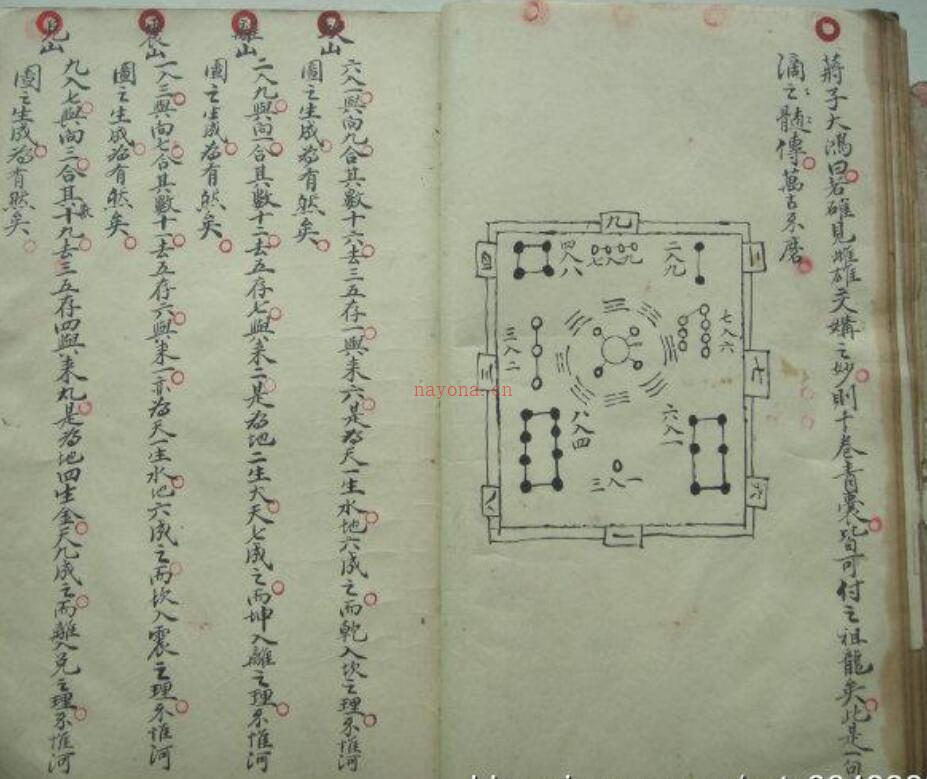 蔣子大鴻曰若確見雌雄交媾之妙則十卷青囊皆可付之祖龍矣此是一句
滴之髓傳萬古不磨
九
四入八
七入九
二入九
三入二
七入六
八入四
六入一
三入一
一
坎山
六入一與向九合其數十六去三五存一與来六是為天一生水地六成之而乾入坎之理不惟河
圖之生成為有然矣
離山
二入九與向一合其數十二去五存七與来二是為地二生火天七成之而坤入離之理不惟河
圖之生成為有然矣
震山
一入三與向七合其數十一去五存六與来一亦為天一生水地六成之而坎入震之理不惟河
圖之生成為有然矣
兌山
九入七與向三合其數十九去三五存四與来九是為地四生金天九成之而離入兌之理不惟河
圖之生成為有然矣
nayona.cn